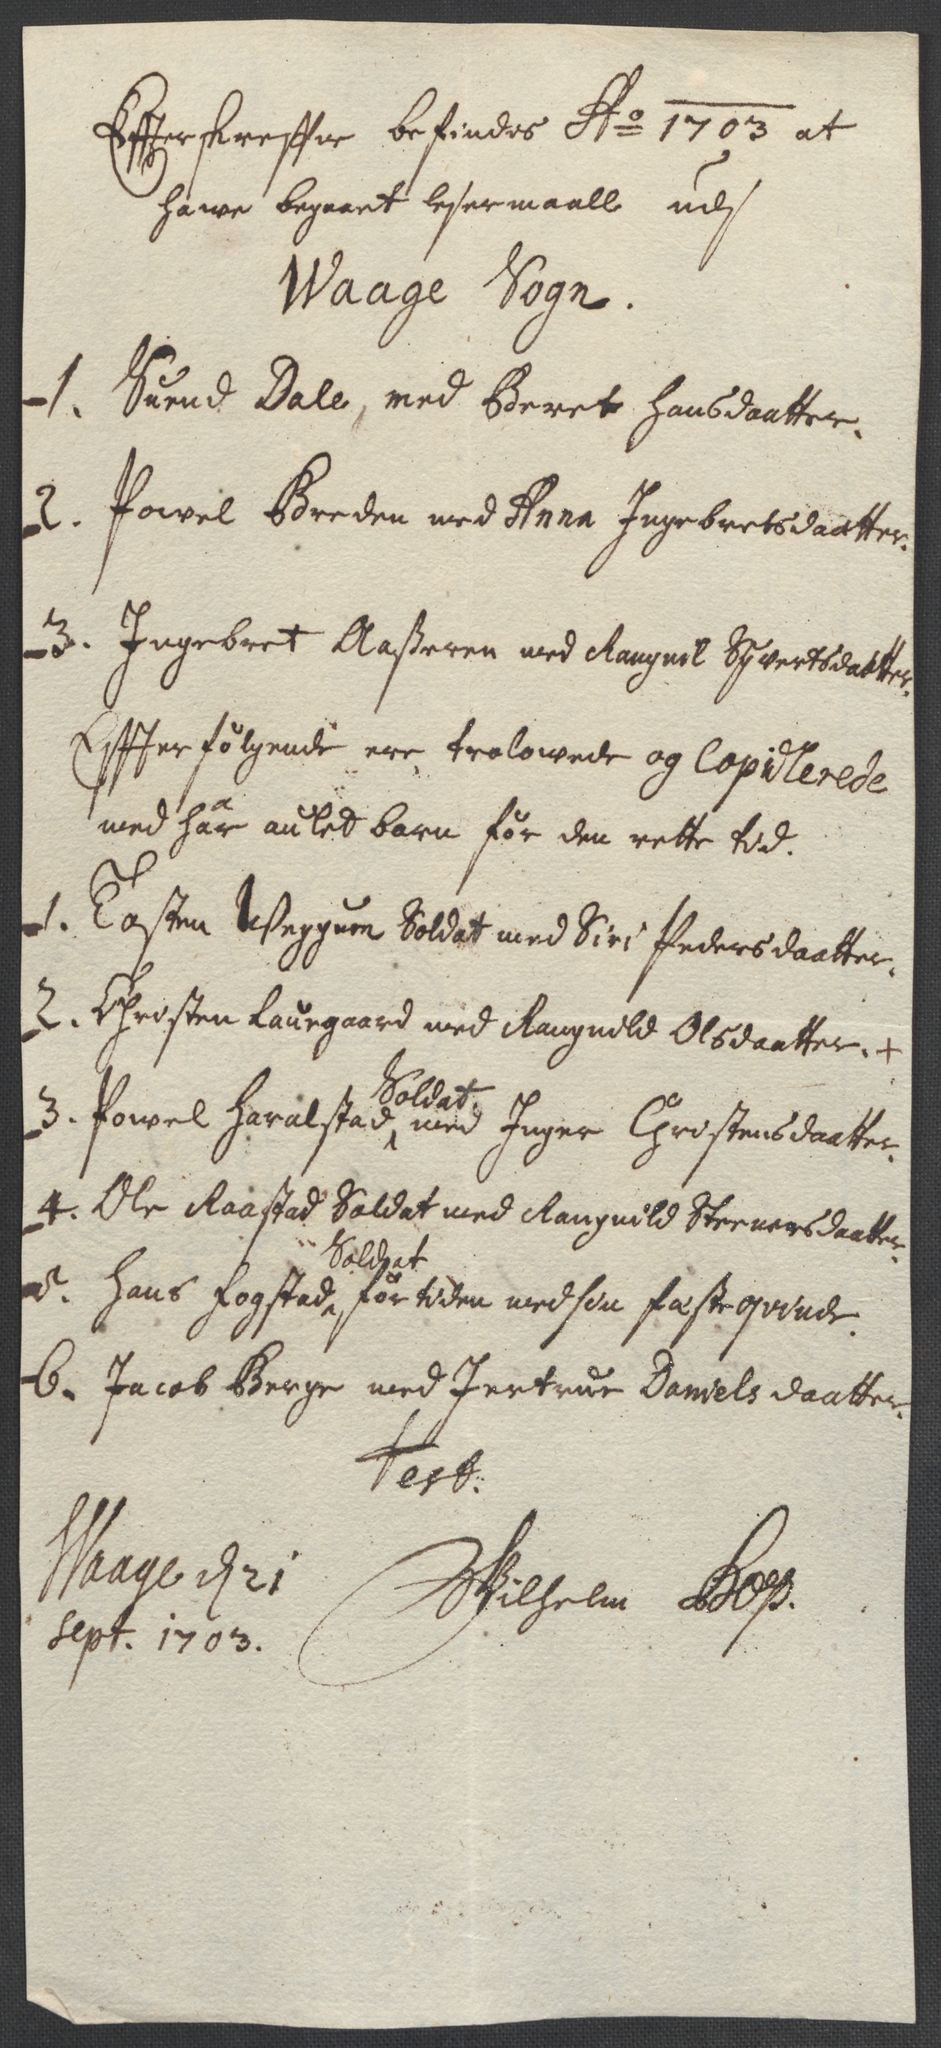 Effterskreffne befindes Ao 1703 at
hawe begaaet lejermaall udj
Waage Sogn.
1. Suend Dale, med Beret Hansdaatter.
2. Powel Breden med Anna Ingebretsdaatter.
3. Ingebret Aaßeren med Rangnil Syvertsdaatter.
Effterfølgende ere trolowede og Copulerede
med har aulet barn før den rette tid.
1. Tosten Weggum Soldat med Siri Pedersdaatter.
2. Christen Lauegaard med Rangnild Olsdaatter. +
3. Powel Haralstad Soldat med Inger Christensdaatter.
4. Ole Raastad Soldat med Rangnild Steenersdaatter.
5. Hans Fogstad Soldat før tiden med sin feste qvinde.
6. Jacob Berge med Jertrue Daniels daatter.
Test.
Waage d 21 Wilhelm Bop.
Sept. 1703.